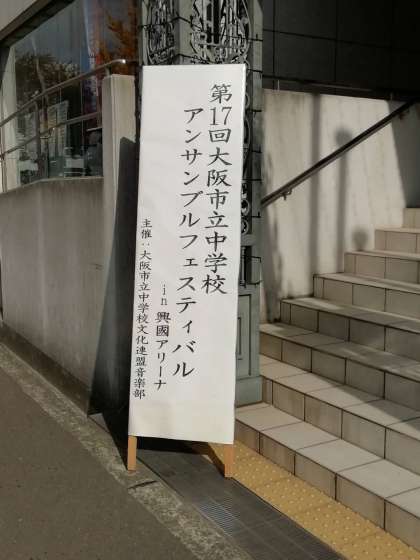 第17回大阪市立中学校
アンサンブルフェスティバル
in 興國アリーナ
主催：大阪市立中学校文化連盟音楽部